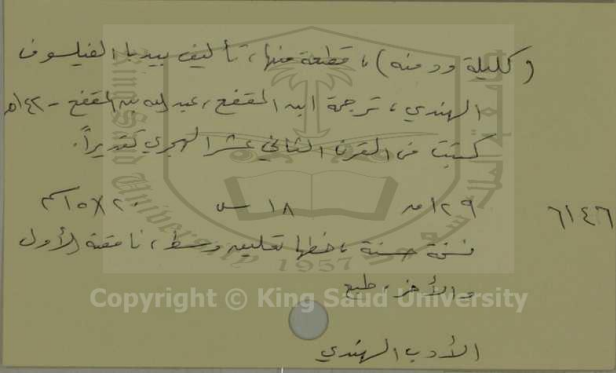 (كليلة ودمنه)، قطعة منها، تأليف بيدبا الفيلسوف
الهندي، ترجمة ابن المقفع، عبد الله بن المقفع - ١٤٢هـ
كتبت في القرن الثاني عشر الهجري تقديراً.
٦١٤٦ ١٢٩ ق ١٨ س ٢٠×١٥سم
نسخة حسنة، خطها تعليق وسط، ناقصة الأول
والأخر، طبع
الأدب الهندي
Copyright © King Saud University
1957